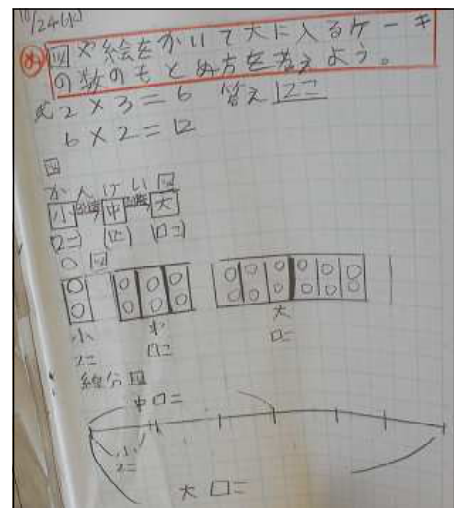 10/24(水)
め 図や絵をかいて大に入るケーキ
の数のもとめ方を考えよう。
式 2×3=6 答え 12こ
6×2=12
図
かんけい図
小 中 大
(2こ) (□こ) (□こ)
○図
小 中 大
2こ □こ □こ
線分図
中□こ
小
2こ
大 □こ